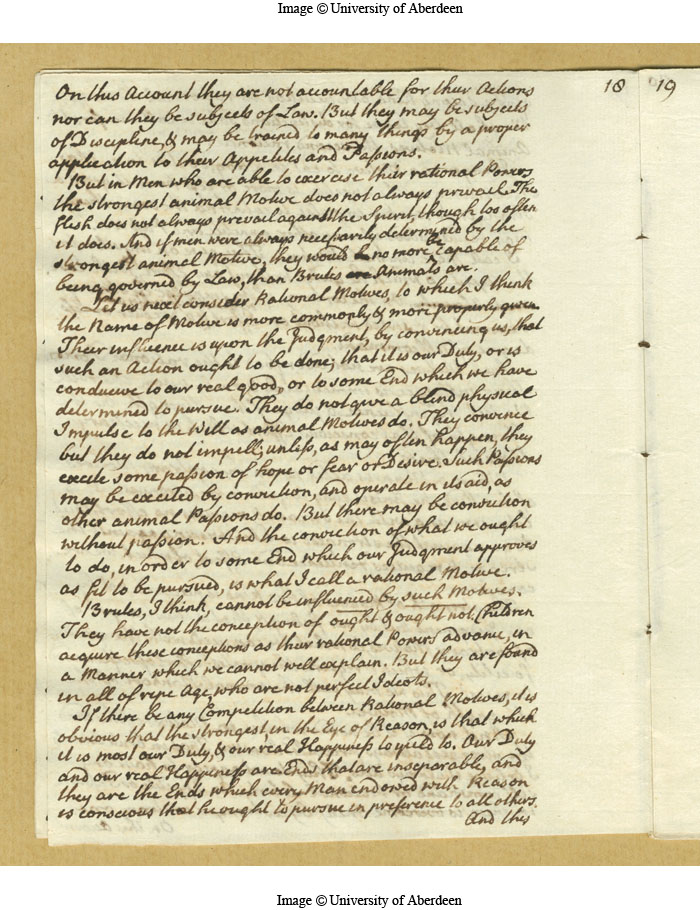 Image © University of Aberdeen
18
19
On this Account they are not accountable for their Actions
nor can they be subjects of Law. But they may be subjects
of Discipline, & may be trained to many things by a proper
application to their Appetites and Passions.
But in Men who are able to exercise their rational Powers
the strongest animal Motive does not always prevail. The
flesh does not always prevail against the Spirit, though too often
it does. And if men were always necessarily determined by the
strongest animal Motive, they would no more be capable of
being governed by Law, than Brute Animals are.
Let us next consider Rational Motives, to which I think
the Name of Motive is more commonly & more properly given.
Their influence is upon the Judgment, by convincing us, that
such an Action ought to be done; that it is our Duty, or is
conducive to our real good, or to some End which we have
determined to pursue. They do not give a blind physical
Impulse to the Will as animal Motives do. They convince
but they do not impell; unless, as may often happen, they
excite some passion of hope or fear or Desire. Such Passions
may be excited by conviction, and operate in its aid, as
other animal Passions do. But there may be conviction
without passion. And the conviction of what we ought
to do, in order to some End which our Judgment approves
as fit to be pursued, is what I call a rational Motive.
Brutes, I think, cannot be influenced by such Motives.
They have not the conception of ought & ought not. Children
acquire these conceptions as their rational Powers advance, in
a Manner which we cannot well explain. But they are found
in all of ripe Age, who are not perfect Ideots.
If there be any Competition between Rational Motives, it is
obvious that the strongest in the Eye of Reason, is that which
it is most our Duty, & our real Happiness to yield to. Our Duty
and our real Happiness are Ends that are inseparable, and
they are the Ends which every Man endowed with Reason
is conscious that he ought to pursue in preference to all others.
And this
Image © University of Aberdeen